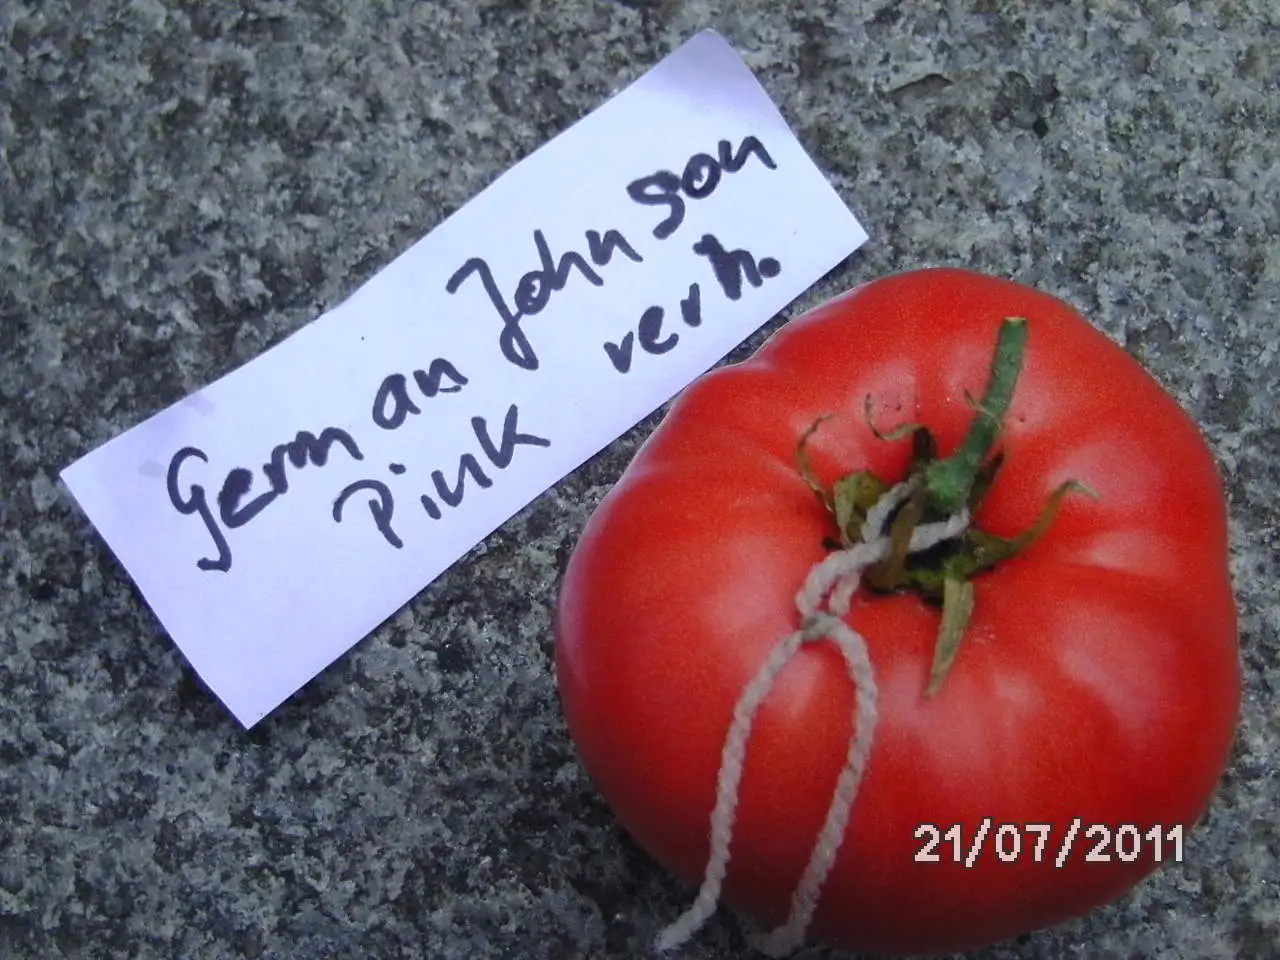 German Johnson
Pink verh.
21/07/2011